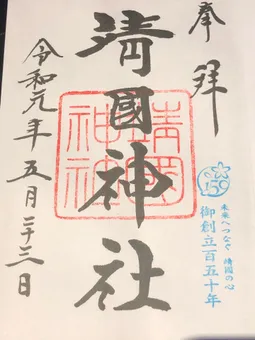 奉拝
150
未来へつなぐ 靖國の心
御創立百五十年
靖國神社
靖國
神社
令和元年五月二十三日